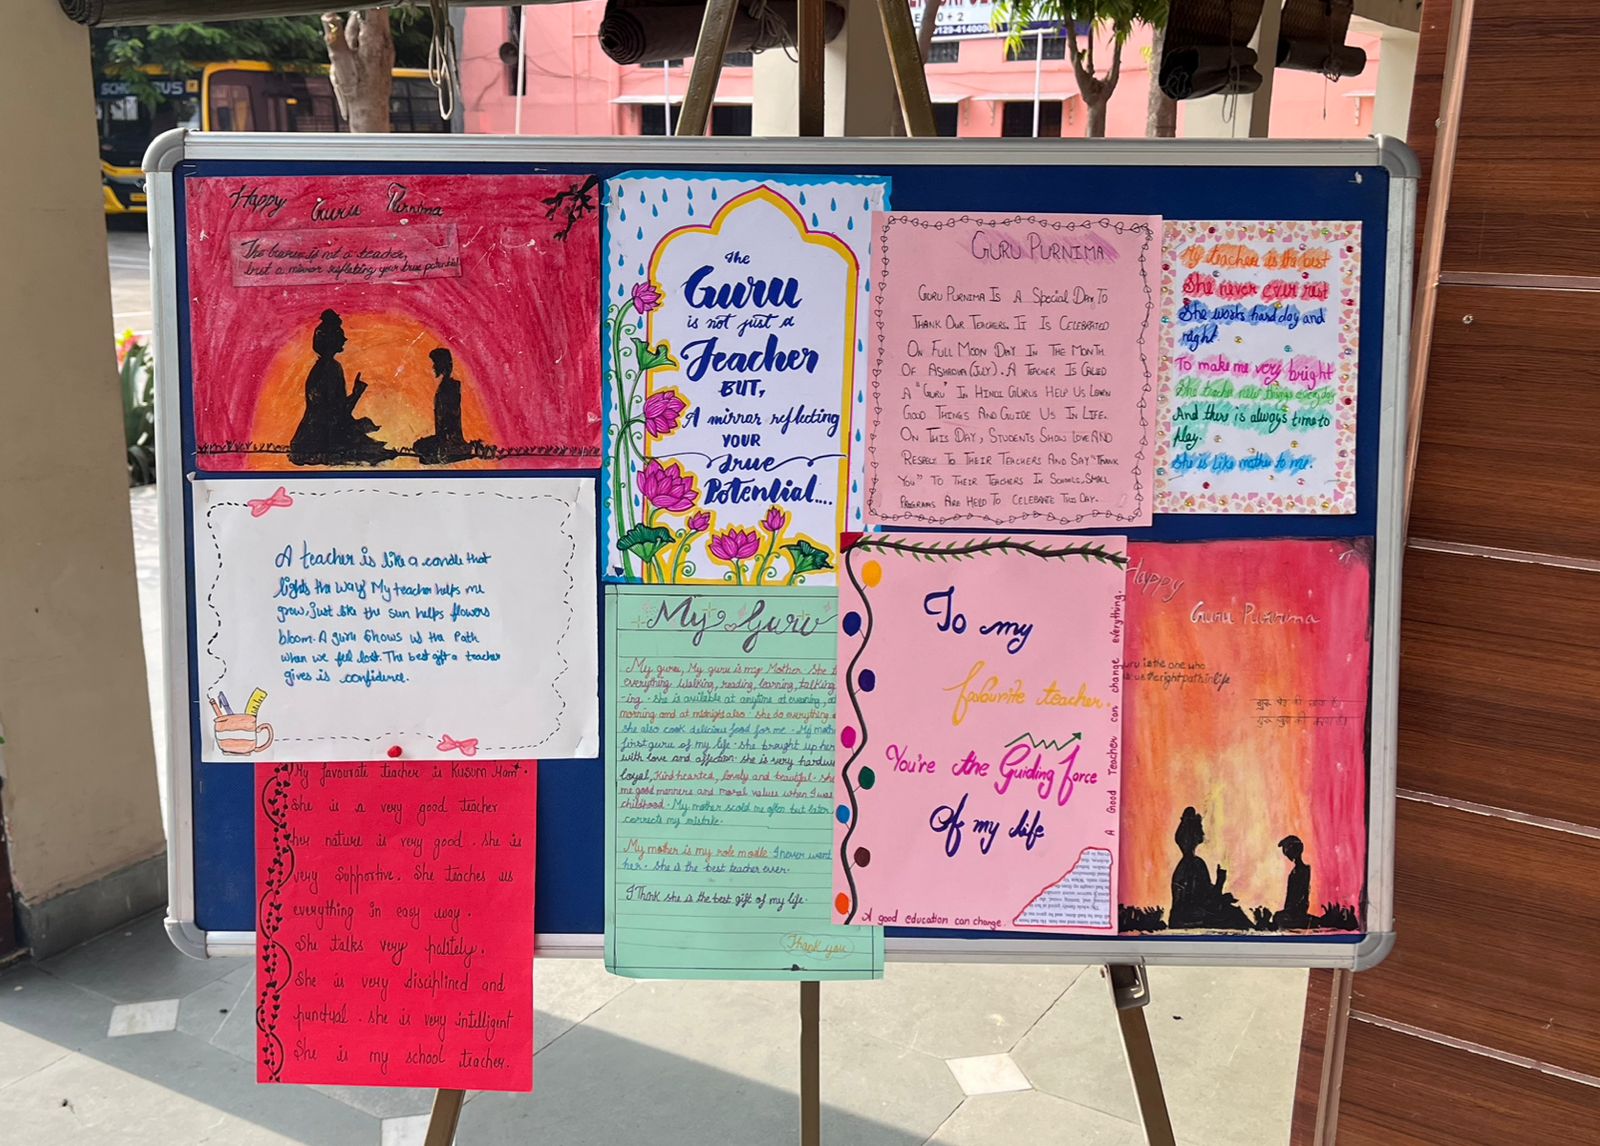 SCHOOL BUS
Happy Guru Purnima
The Guru is not a teacher,
but a mirror reflating your true potential
The
Guru
is not just a
Teacher
BUT,
A mirror reflecting
YOUR
True
Potential....
GURU PURNIMA
GURU PURNIMA IS A SPECIAL DAY TO
THANK OUR TEACHERS. IT IS CELEBRATED
ON FULL MOON DAY IN THE MONTH
OF ASHADHA (JULY). A TEACHER IS CALLED
A "GURU" IN HINDI GURUS HELP US LEARN
GOOD THINGS AND GUIDE US IN LIFE.
ON THIS DAY, STUDENTS SHOW LOVE AND
RESPECT TO THEIR TEACHERS AND SAY "THANK
YOU" TO THEIR TEACHERS IN SCHOOLS, SMALL
PROGRAMS ARE HELD TO CELEBRATE THIS DAY.
My teacher is the best
She never ever rest
She works hard day and
night.
To make me very bright
She teacher new things everyday
And there is always time to
play.
She is like mother to me.
A teacher is like a candle that
lights the way! My teacher helps me
grow, just like the sun helps flowers
bloom. A guru shows us the path
when we feel lost. The best gift a teacher
gives is confidence.
My Guru
My guru, My guru is my Mother. She t
everything. Walking, reading, learning, talking
-ing. She is avilable at anytime at evening, a
morning and at midnight also. She do everything
she also cook delicious food for me. My mothe
first guru of my life. She brought up her
with love and affection. she is very hardwo
loyal, Kind hearted, lovely and beautiful. She
me good manners and moral values when I was
childhood. My mother scold me often but later
corrects my mistake.
My mother is my role modle I never want
her. She is the best teacher ever.
I Think she is the best gift of my life.
Thank you
To my
favourite teacher.
You're the Guiding force
Of my life
A Good Teacher can change everything.
A good education can change.
Happy
Guru Purnima
guru is the one who
us the right path in life
My favourate teacher is Kusum Mam.
She is a very good teacher
her nature is very good. she is
very supportive. She teaches us
everything in easy way.
She talks very politely.
She is very disciplined and
punctual. she is very intelligent
She is my school teacher.